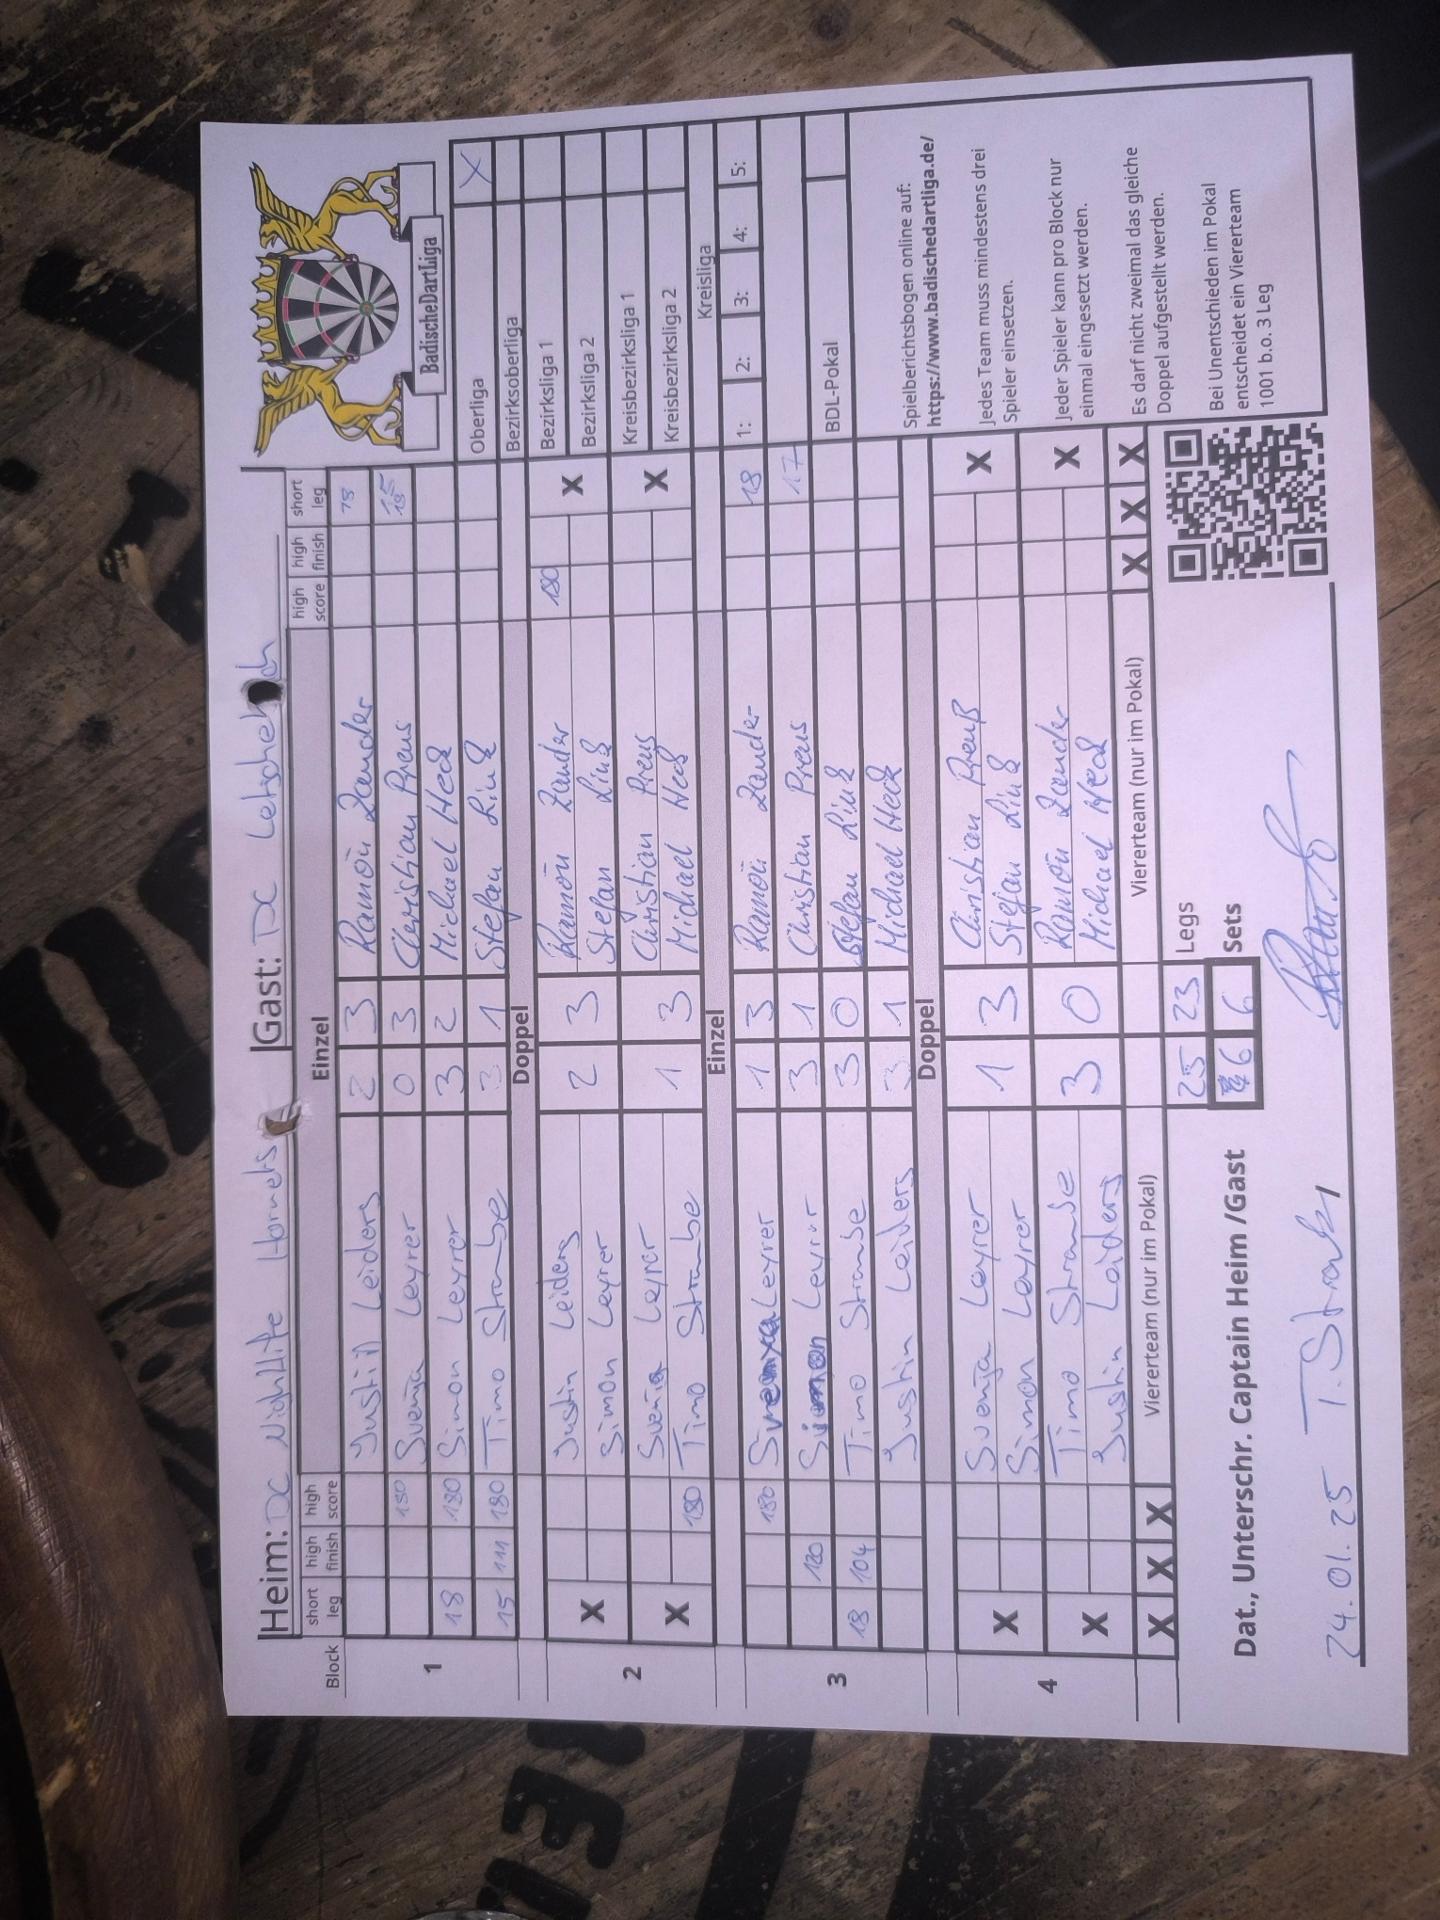 Heim: DC Nightlife Hornets Gast: DC Letschebach
BadischeDartLiga
Block short leg high finish high score Einzel high score high finish short leg
1
Justin Leiders 2 3 Ramon Zander 18
180 Svenja Leyrer 0 3 Christian Preus
18 180 Simon Leyrer 3 2 Michael Heck
15 111 180 Timo Straube 3 1 Stefan Link
Doppel
2
X Justin Leiders 2 3 Ramon Zander 180 X
Simon Leyrer Stefan Link
X Svenja Leyrer 1 3 Christian Preus X
180 Timo Straube Michael Heck
Einzel
3
180 Svenja Leyrer 1 3 Ramon Zander 18
120 Simon Leyrer 3 1 Christian Preus 17
18 104 Timo Straube 3 0 Stefan Link
Justin Leiders 3 1 Michael Heck
Doppel
4
X Svenja Leyrer 1 3 Christian Preuß X
Simon Leyrer Stefan Link
X Timo Straube 3 0 Ramon Zander X
Justin Leiders Michael Heck
X X X Viererteam (nur im Pokal) Viererteam (nur im Pokal) X X X
25 23 Legs
6 6 Sets
Dat., Unterschr. Captain Heim /Gast
24.01.25 T. Straube
Oberliga X
Bezirksoberliga
Bezirksliga 1
Bezirksliga 2
Kreisbezirksliga 1
Kreisbezirksliga 2
Kreisliga
1: 2: 3: 4: 5:
BDL-Pokal
Spielberichtsbogen online auf:
https://www.badischedartliga.de/
Jedes Team muss mindestens drei
Spieler einsetzen.
Jeder Spieler kann pro Block nur
einmal eingesetzt werden.
Es darf nicht zweimal das gleiche
Doppel aufgestellt werden.
Bei Unentschieden im Pokal
entscheidet ein Viererteam
1001 b.o. 3 Leg